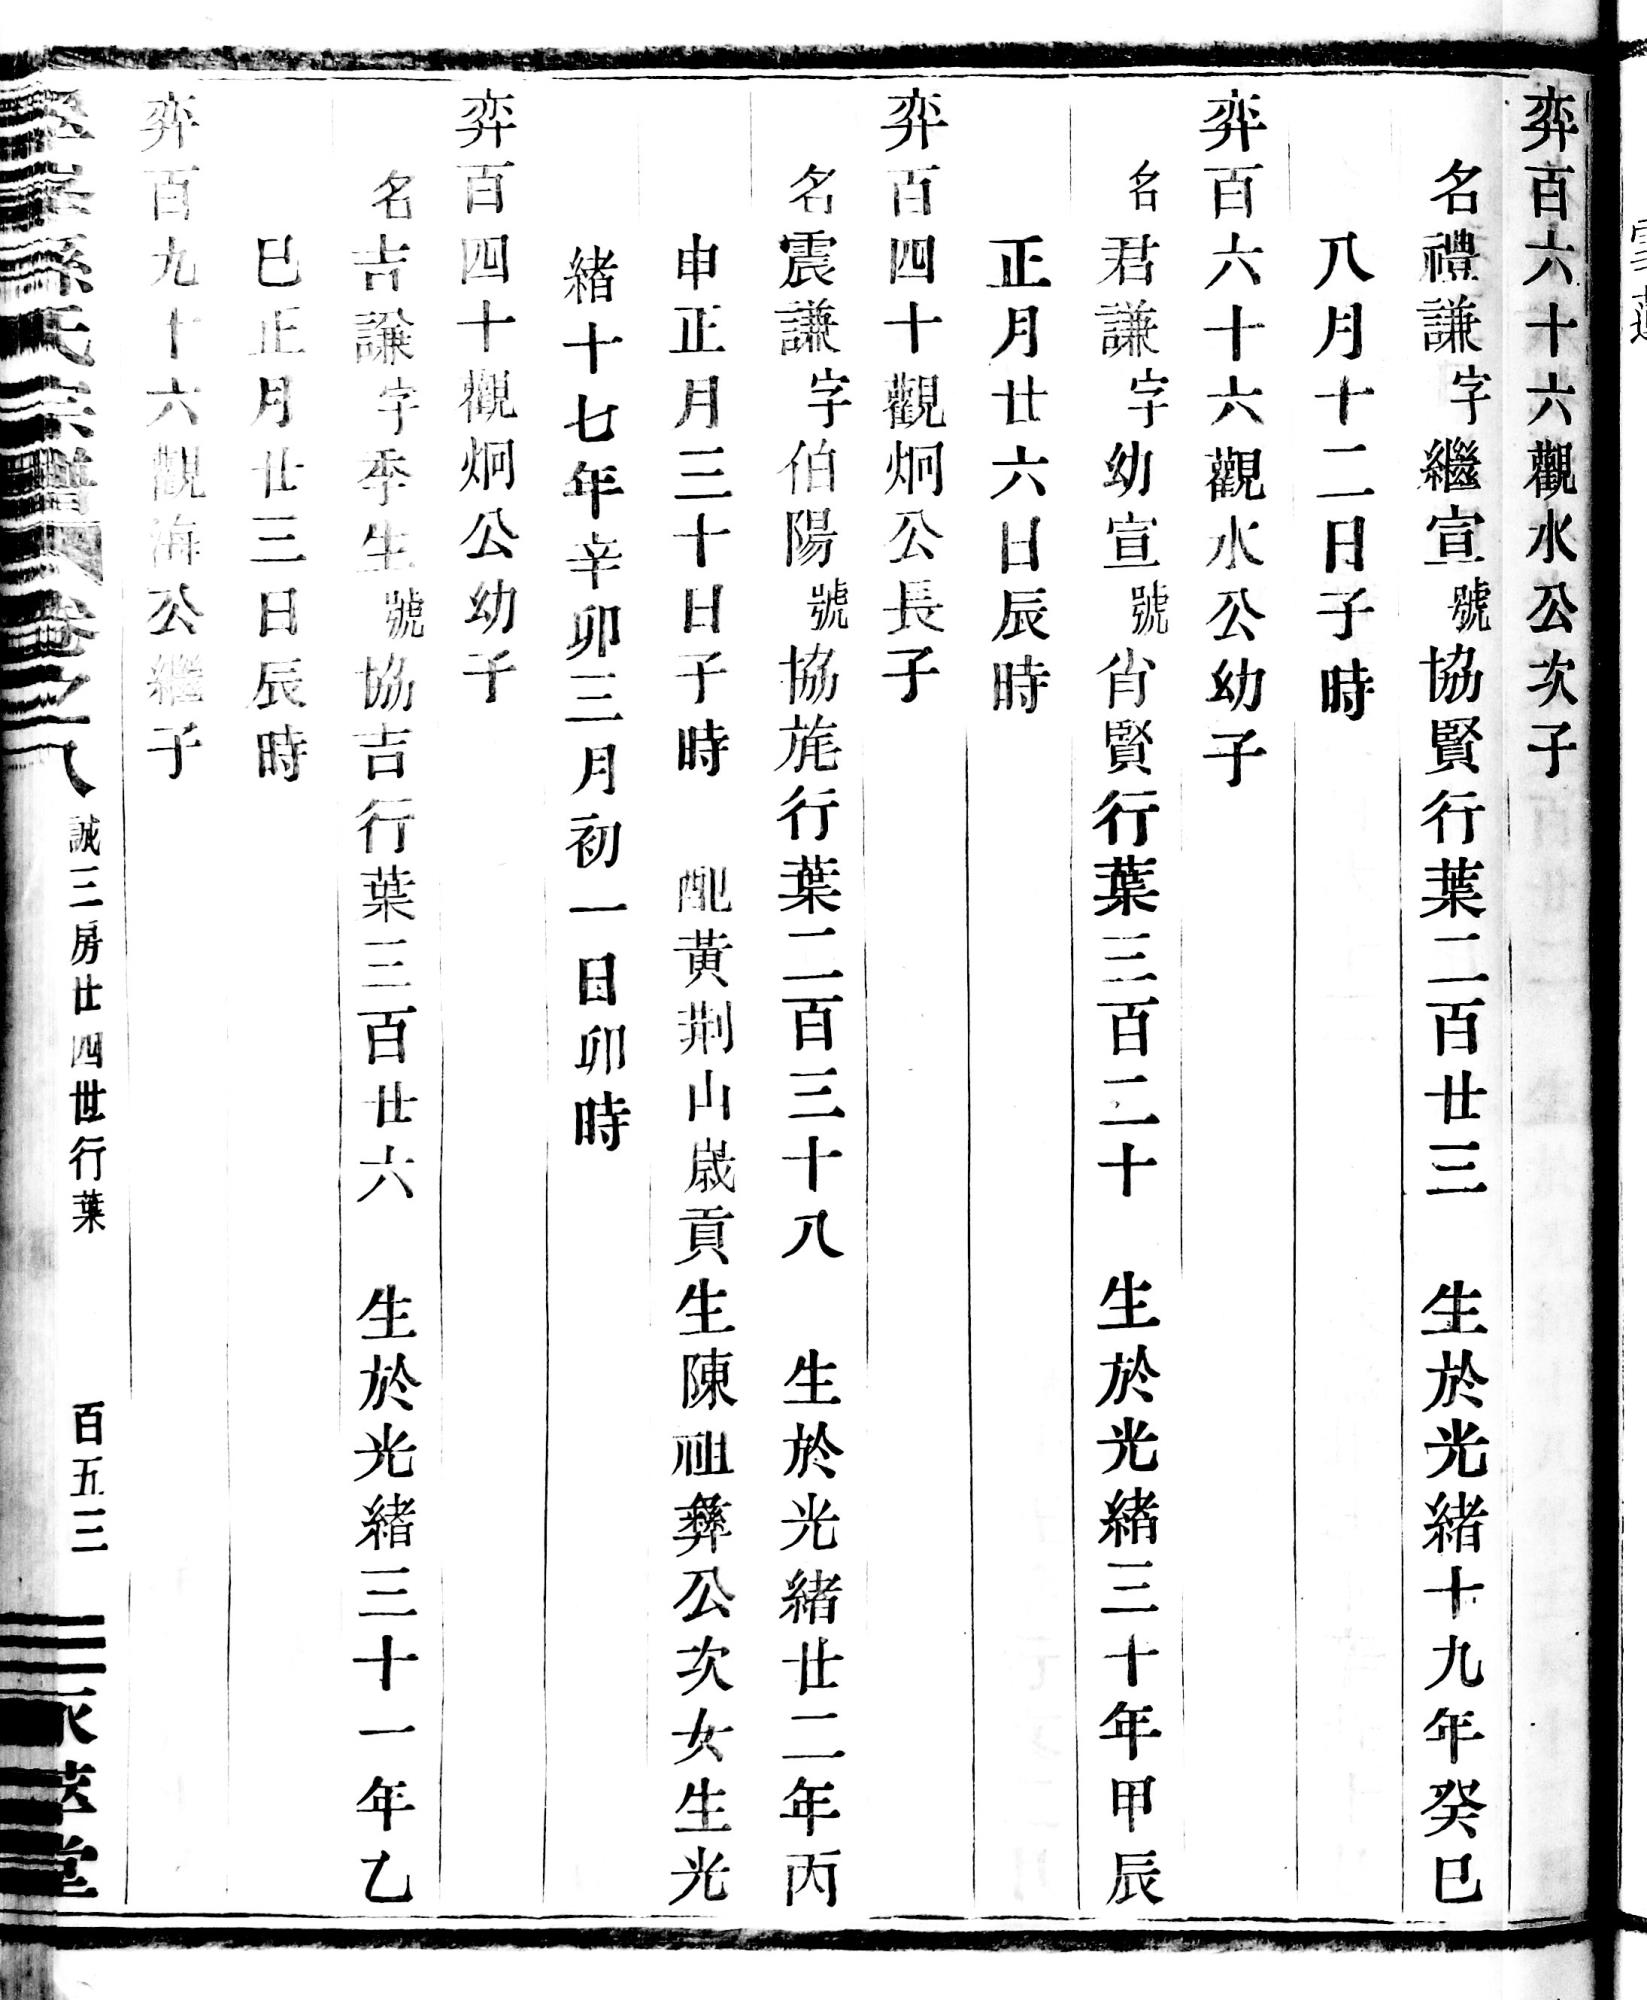 弈百六十六觀水公次子
名禮謙字繼宣號協賢行葉二百廿三 生於光緒十九年癸巳
八月十二日子時
弈百六十六觀水公幼子
名君謙字幼宣號肖賢行葉三百二十 生於光緒三十年甲辰
正月廿六日辰時
弈百四十觀炯公長子
名震謙字伯陽號協旄行葉二百三十八 生於光緒廿二年丙
申正月三十日子時 配黃荆山歲貢生陳祖彝公次女生光
緒十七年辛卯三月初一日卯時
弈百四十觀炯公幼子
名吉謙字季生號協吉行葉三百廿六 生於光緒三十一年乙
巳正月廿三日辰時
弈百九十六觀海公繼子
孫氏宗譜 卷之八 誠三房廿四世行葉 百五三 堂